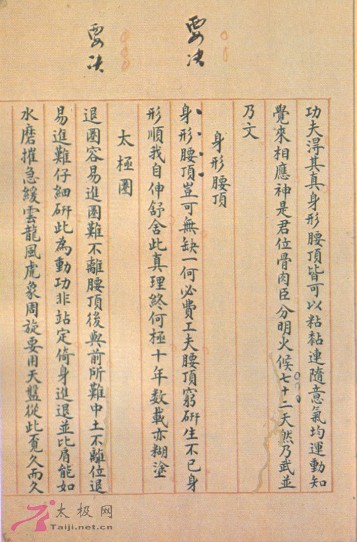 要决
要决
功夫淂其真身形腰頂皆可以粘黏連隨意氣均運動知
覺來相應神是君位骨肉臣分明火候七十二天然乃武並
乃文
身形腰頂
身形腰頂豈可無缺一何必費工夫腰頂窮硏生不已身
形順我自伸舒舍此真理終何極十年數載亦糊塗
太極圈
退圈容易進圈難不離腰頂後與前所難中土不離位退
易進難仔細硏此為動功非站定倚身進退並比肩能如
水磨摧急緩雲龍風虎象周旋要用天盤從此覓久而久
太极网
Taiji.net.cn